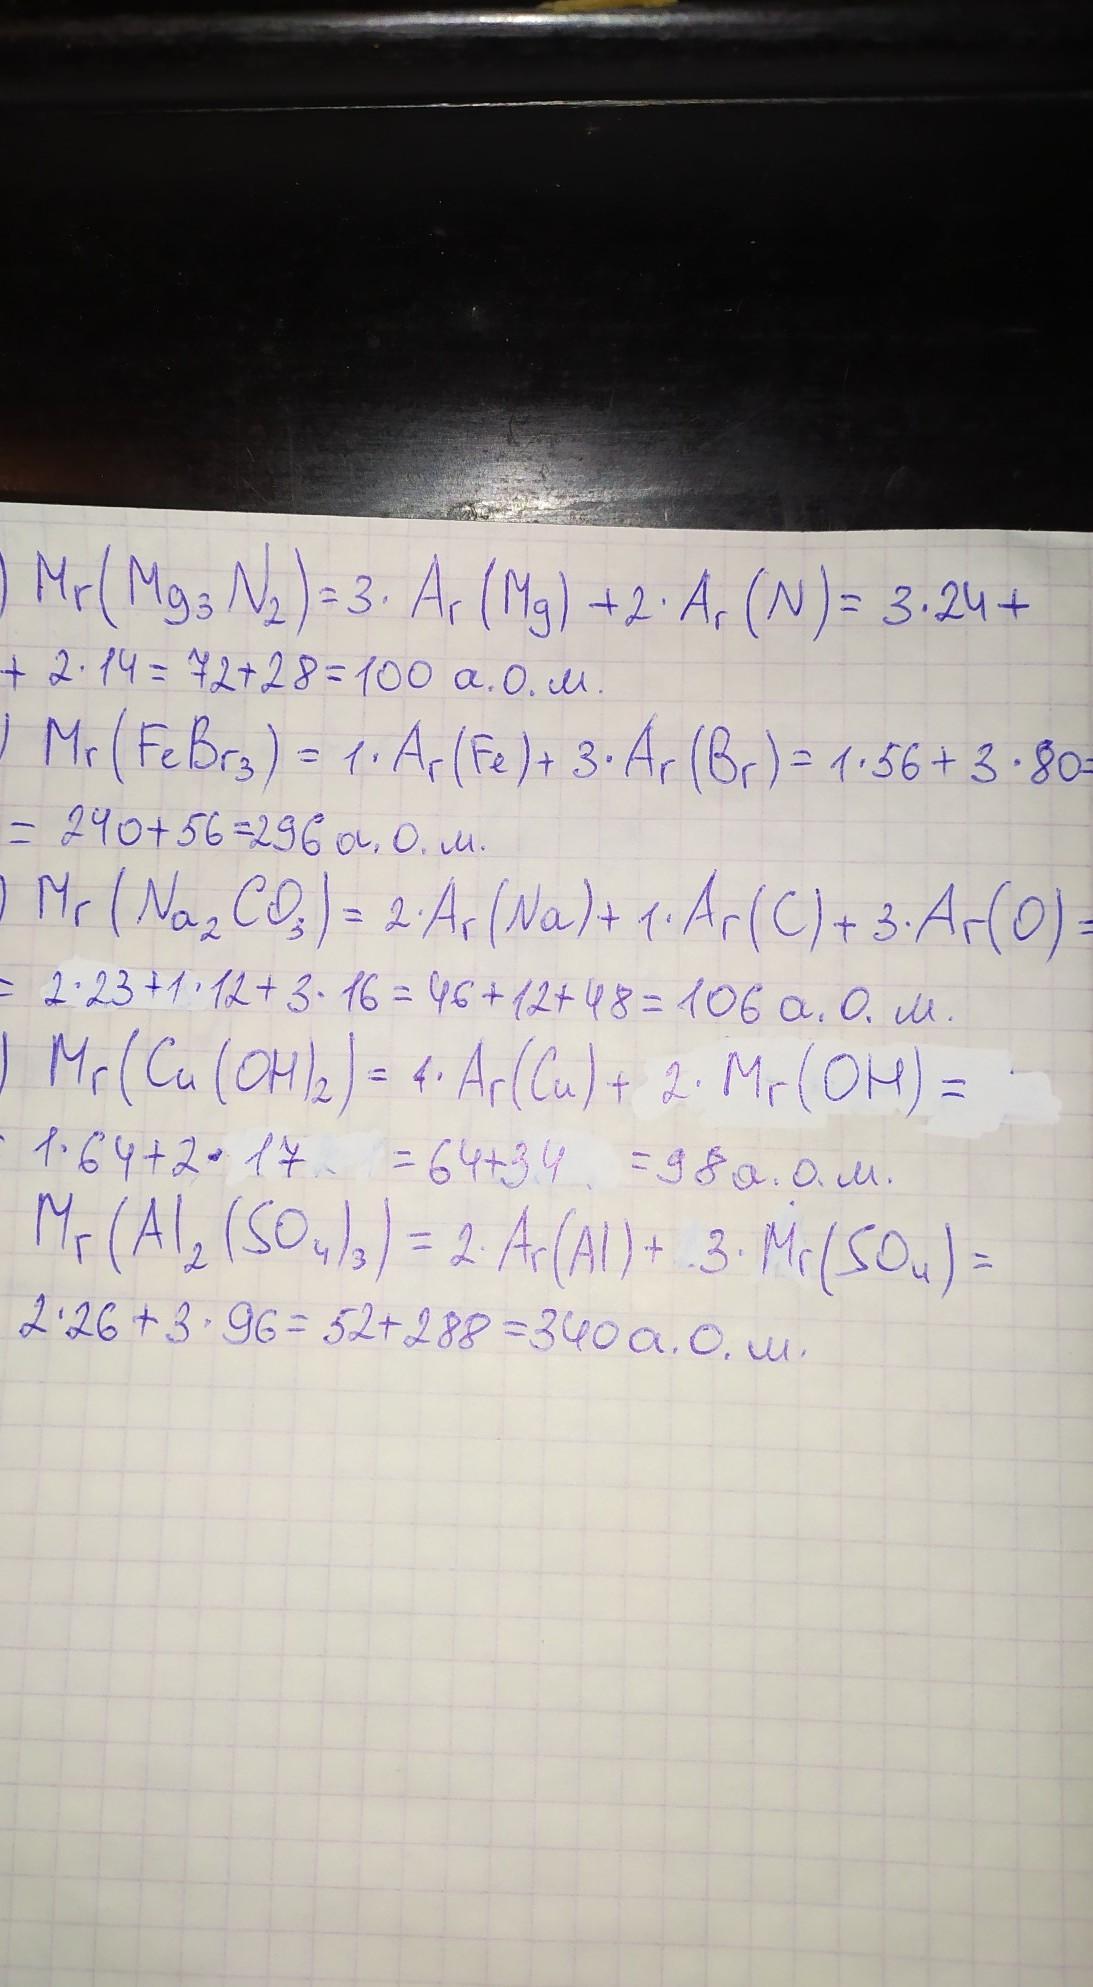 ) Mr(Mg₃N₂)=3· Ar(Mg)+2· Ar(N)= 3·24+
+ 2·14= 72+28=100 а.о.м.
) Mr(FeBr₃)= 1·Ar(Fe)+ 3·Ar(Br)= 1·56+3·80=
= 240+56=296 а.о.м.
) Mr(Na₂CO₃)= 2·Ar(Na)+ 1·Ar(C)+ 3·Ar(O)=
= 2·23+1·12+3·16=46+12+48=106 а.о.м.
) Mr(Cu(OH)₂)= 1·Ar(Cu)+ 2·Mr(OH)=
1·64+2·17 =64+34 =98а.о.м.
Mr(Al₂(SO₄)₃)= 2·Ar(Al)+ 3·Mr(SO₄)=
2·26+3·96=52+288=340а.о.м.